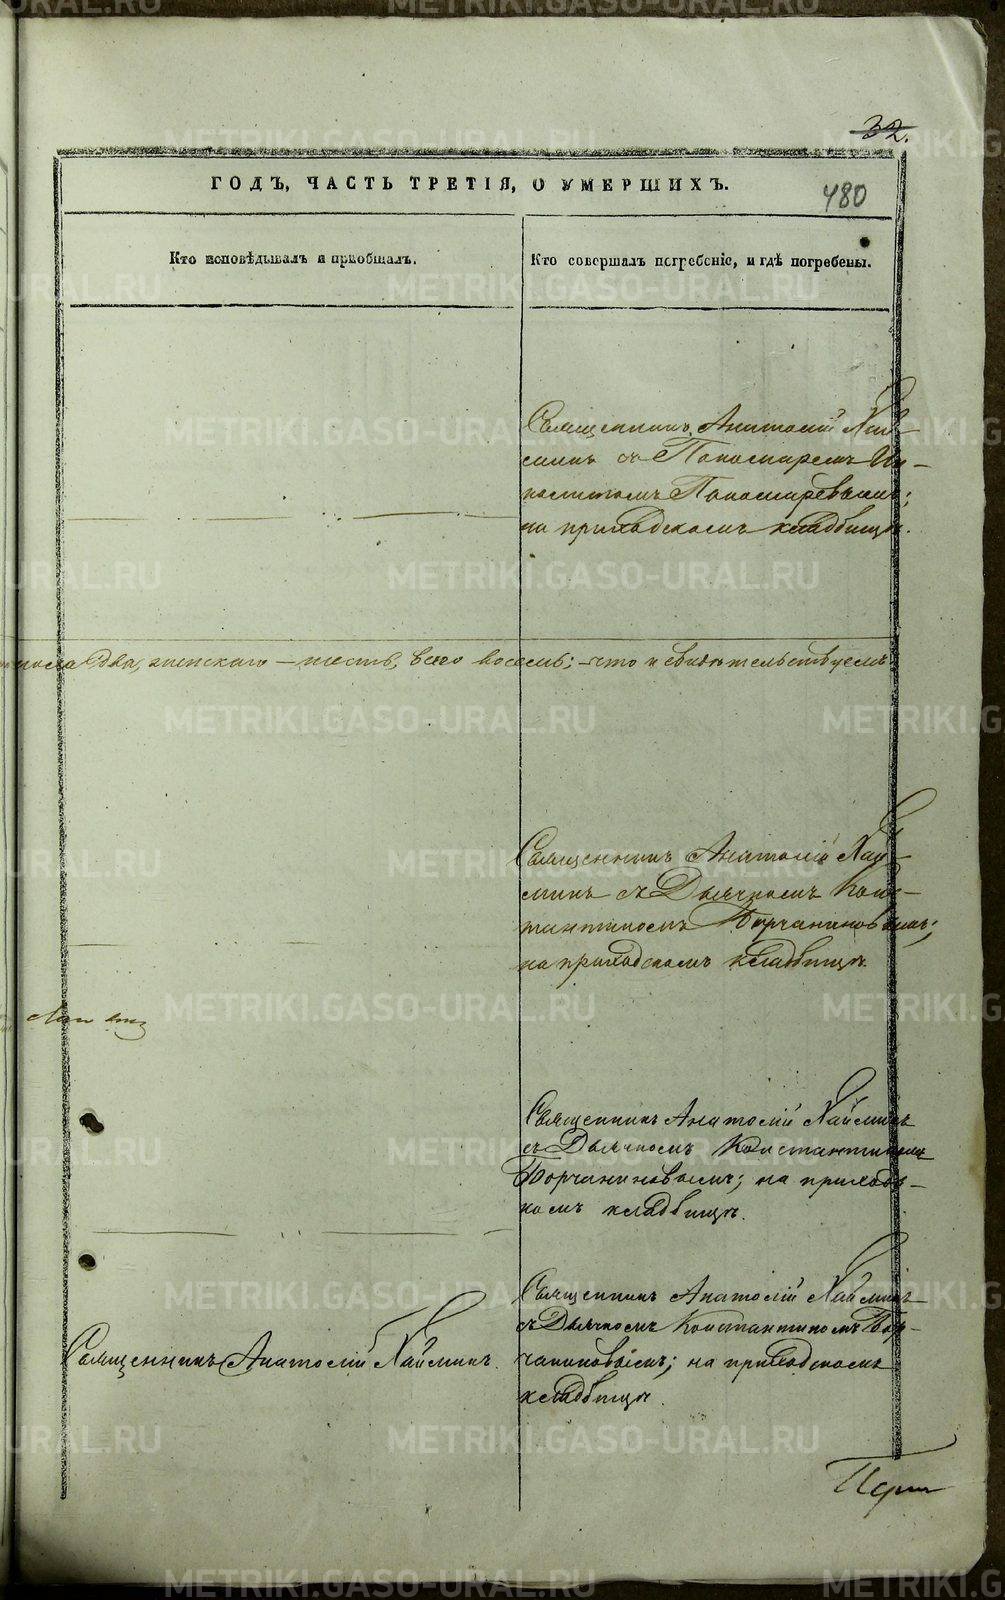 32.
ГОДЪ, ЧАСТЬ ТРЕТІЯ, О УМЕРШИХЪ.
480
Кто исповѣдывалъ и пріобщалъ.
Кто совершалъ погребеніе, и гдѣ погребены.
Священникъ Анатолій Хай-
минъ съ Пономаремъ Ип-
политомъ Пономаревымъ;
на приходскомъ кладбищѣ.
пола два, женскаго – шесть, всего восемь; – что и свидѣтельствуемъ
Священникъ Анатолій Хай-
минъ съ Дьячкомъ Конс-
тантиномъ Борчаниновымъ;
на приходскомъ кладбищѣ.
Священникъ Анатолій Хайминъ
съ Дьячкомъ Константиномъ
Борчаниновымъ; на приходс-
комъ кладбищѣ.
Священникъ Анатолій Хайминъ.
Священникъ Анатолій Хайминъ
съ Дьячкомъ Константиномъ Бор-
чаниновымъ; на приходскомъ
кладбищѣ.
METRIKI.GASO-URAL.RU